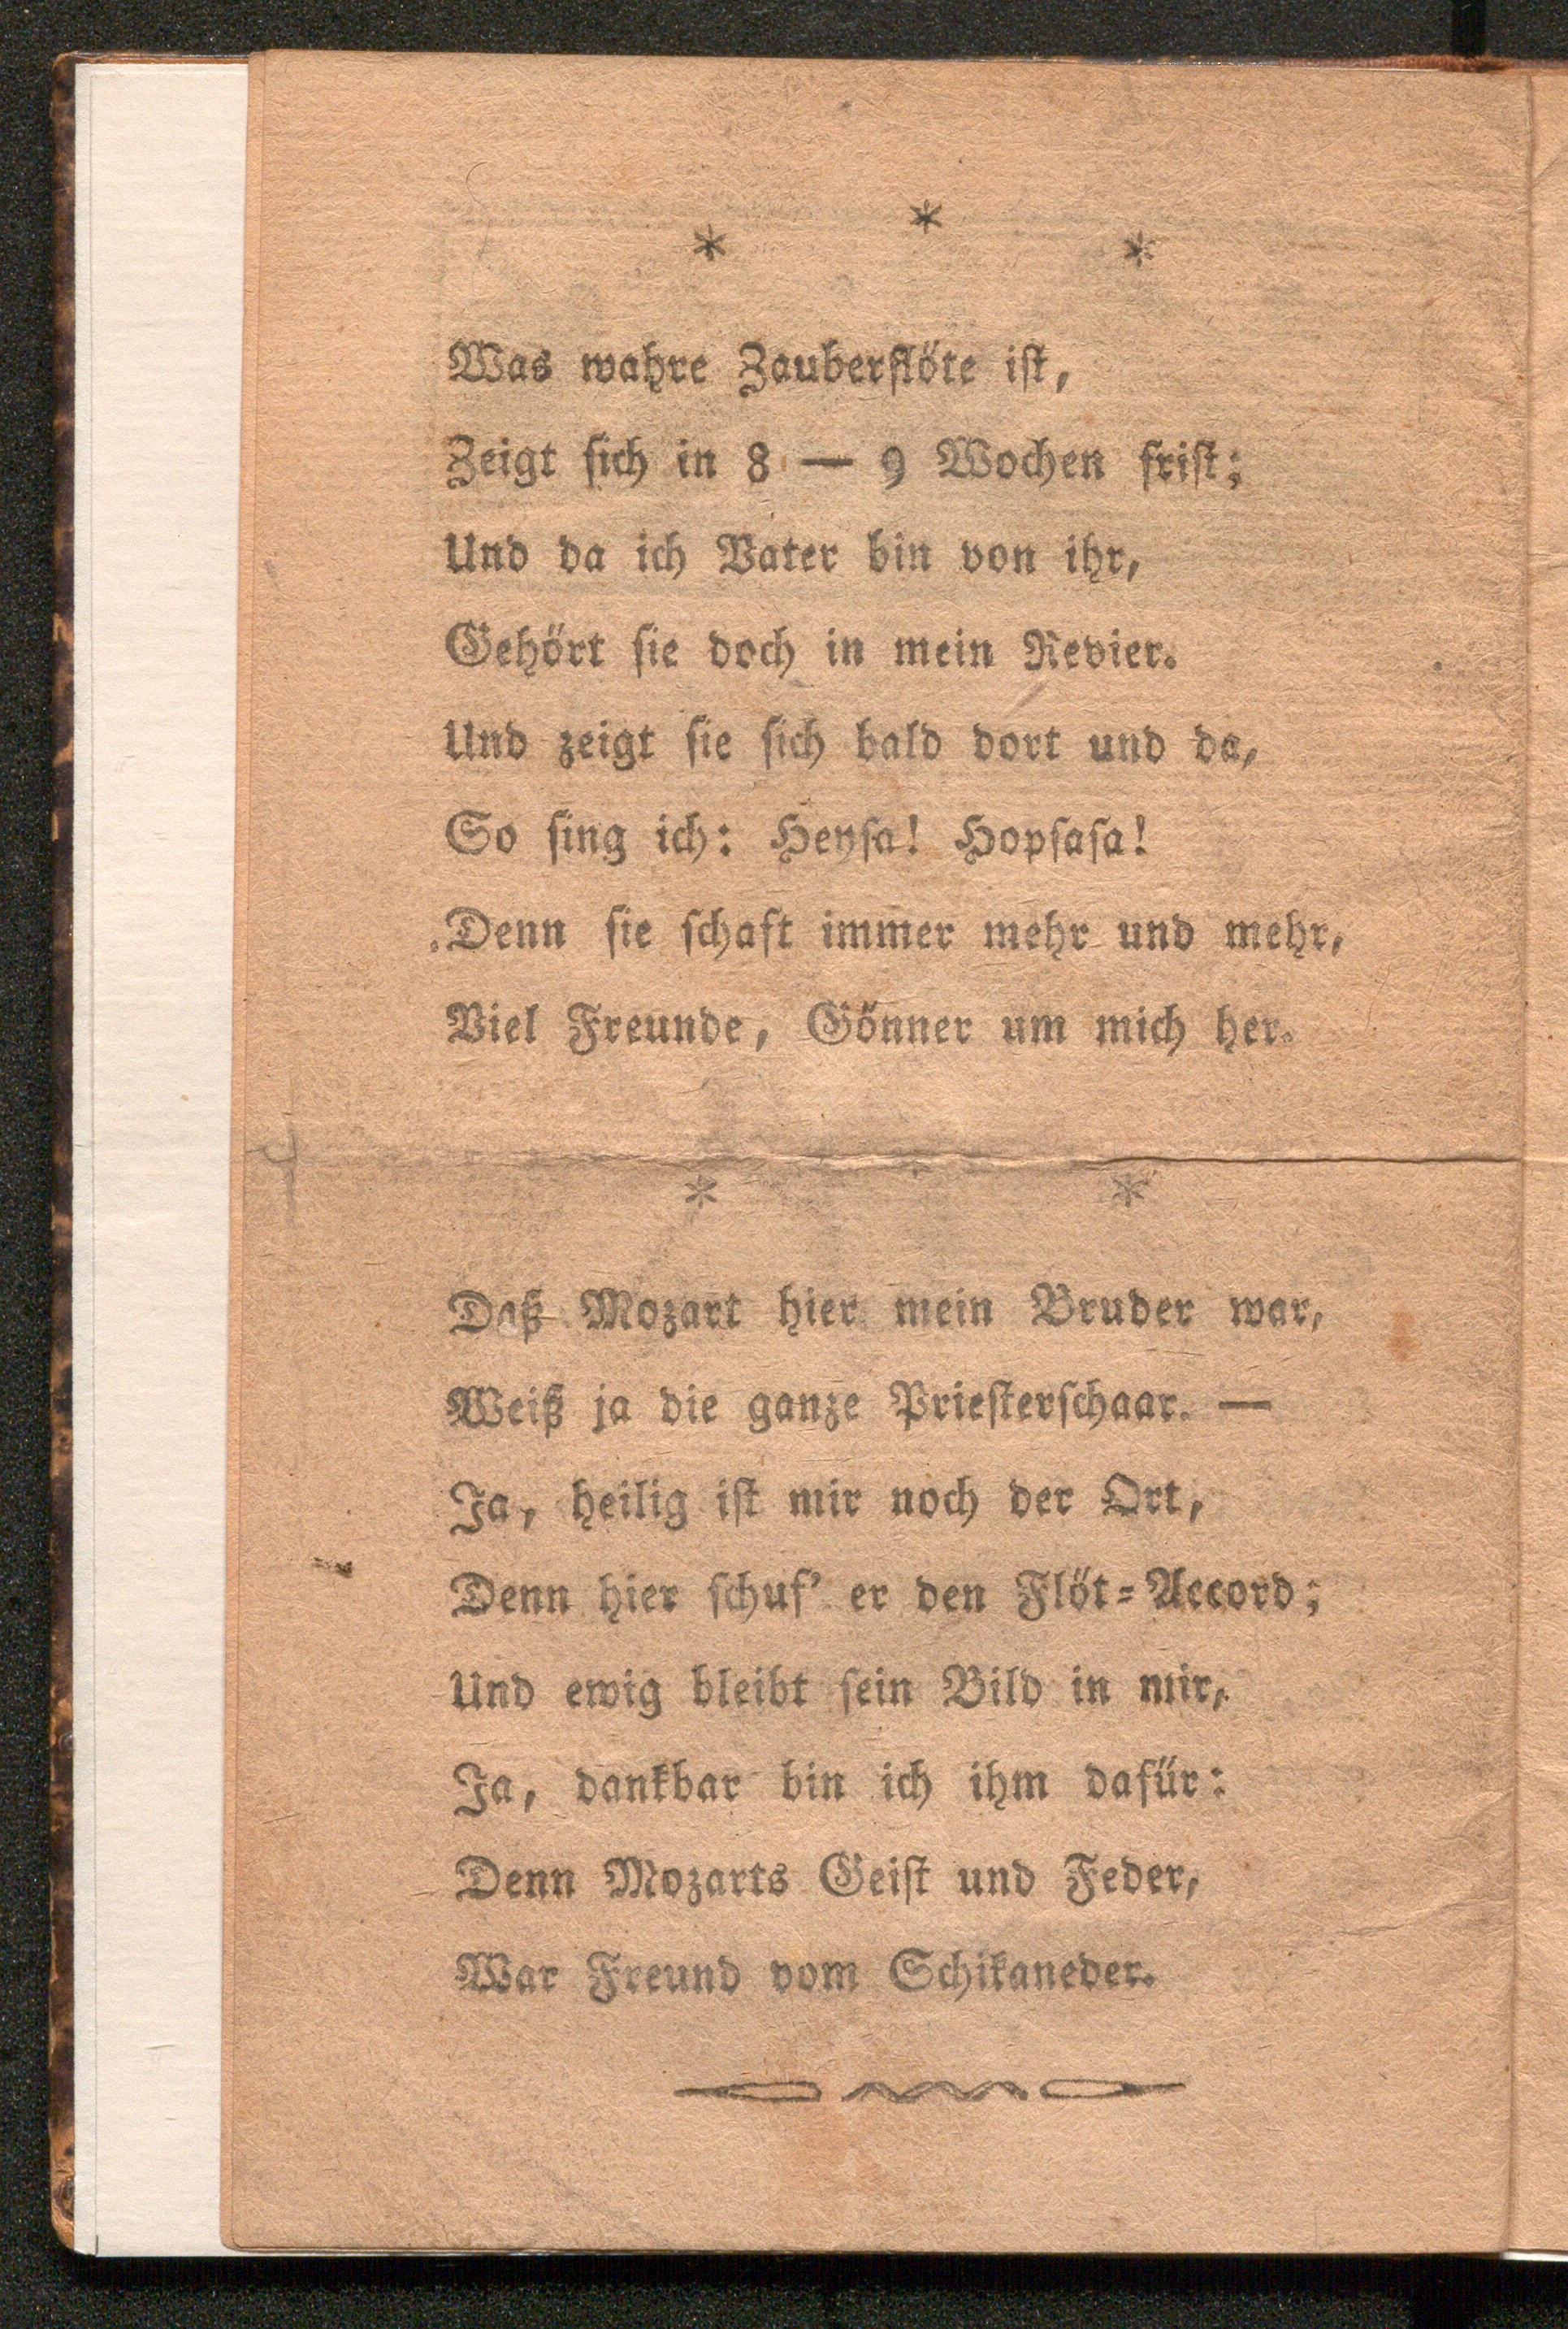 *
* *
Was wahre Zauberflöte ist,
Zeigt sich in 8 — 9 Wochen frist;
Und da ich Vater bin von ihr,
Gehört sie doch in mein Revier.
Und zeigt sie sich bald dort und da,
So sing ich: Heysa! Hopsasa!
Denn sie schaft immer mehr und mehr,
Viel Freunde, Gönner um mich her.
* *
Daß Mozart hier mein Bruder war,
Weiß ja die ganze Priesterschaar. —
Ja, heilig ist mir noch der Ort,
Denn hier schuf' er den Flöt-Accord;
Und ewig bleibt sein Bild in mir,
Ja, dankbar bin ich ihm dafür:
Denn Mozarts Geist und Feder,
War Freund vom Schikaneder.